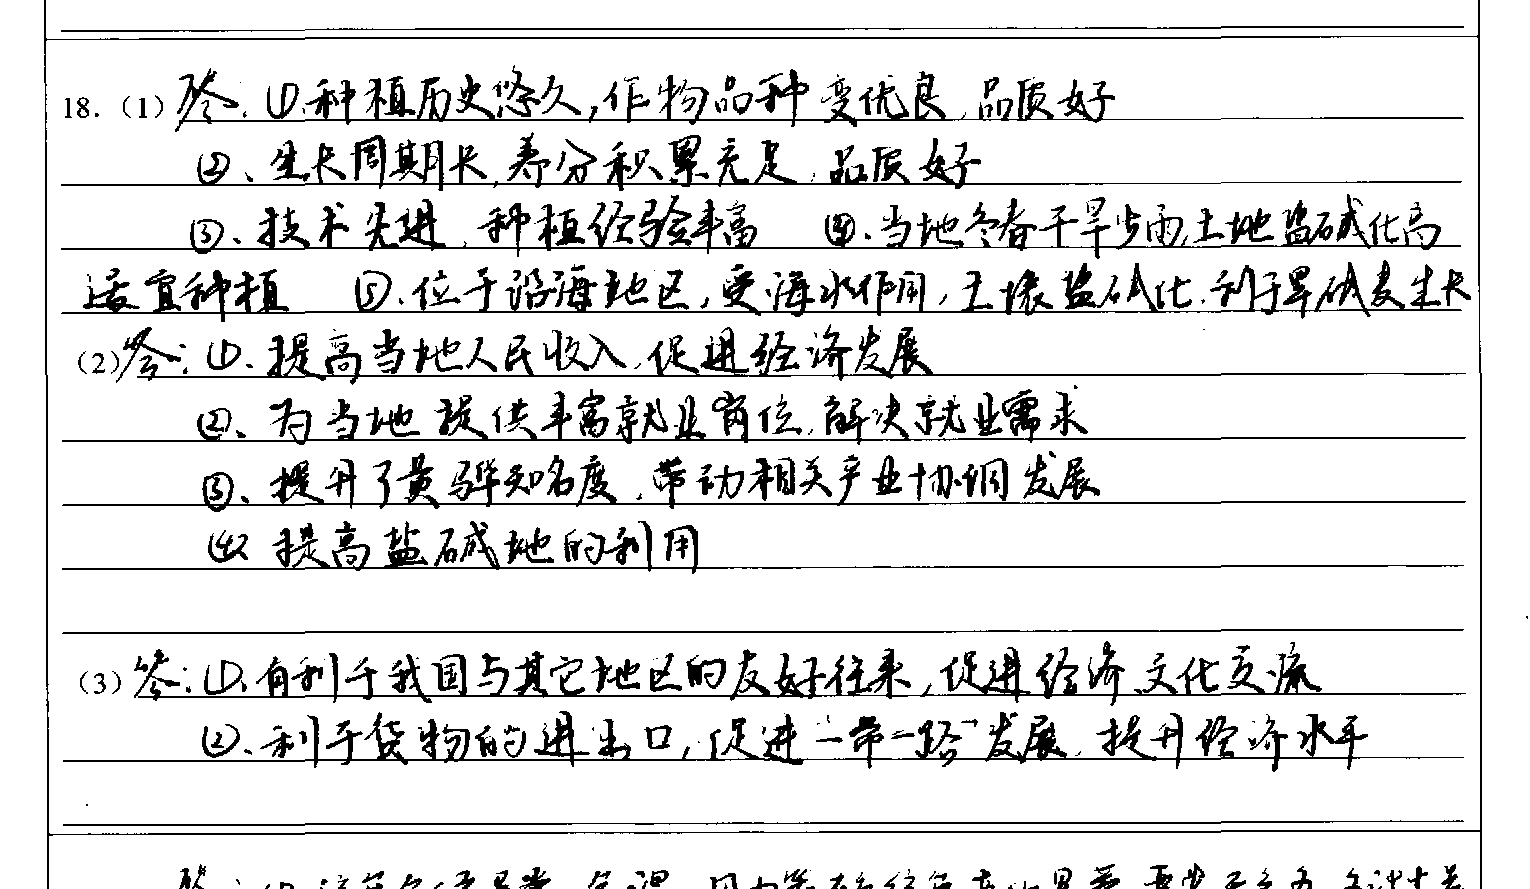 18.（1）答：①.种植历史悠久,作物品种变优良,品质好
②、生长周期长,养分积累充足,品质好
③、技术先进,种植经验丰富 ④.当地冬春干旱少雨,土地盐碱化高
适宜种植 ⑤.位于沿海地区,受海水作用,土壤盐碱化,利于旱碱麦生长
（2）答：①.提高当地人民收入,促进经济发展
②、为当地提供丰富就业岗位,解决就业需求
③、提升了黄骅知名度,带动相关产业协调发展
④ 提高盐碱地的利用
（3）答：①.有利于我国与其它地区的友好往来,促进经济、文化交流
②.利于货物的进出口,促进“一带一路”发展,提升经济水平